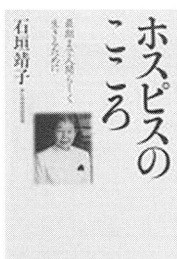 ホスピスの
こころ
最期まで人間らしく
生きるために
石垣靖子